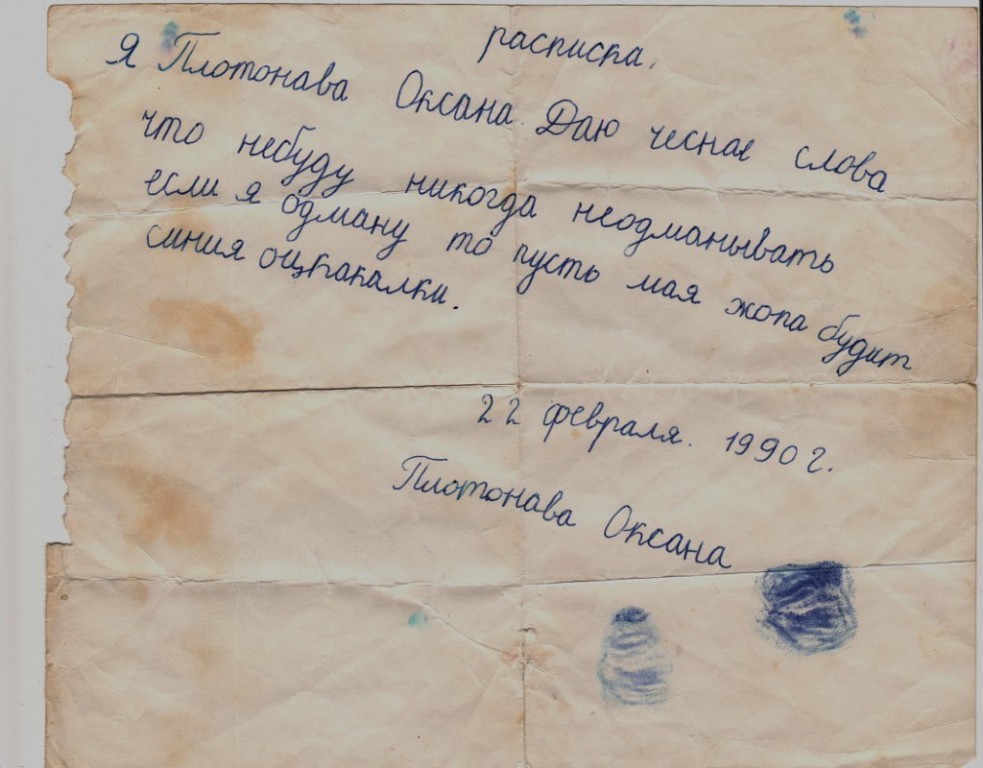 расписка.
Я Плотонава Оксана. Даю чесная слова
что небуду никогда неодманывать
если я одману то пусть мая жопа будит
синия оцкакалки.
22 февраля. 1990 г.
Плотонава Оксана